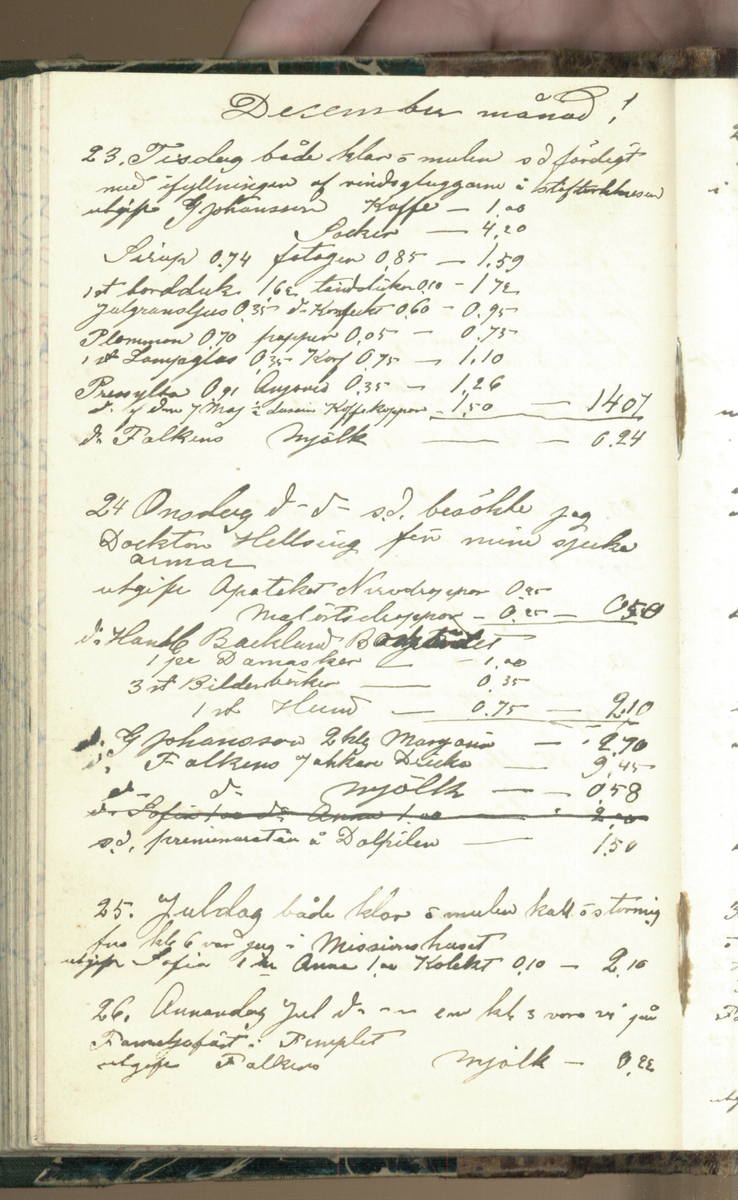 December månad !
23. Tisdag både klar o mulen s d färdigt
med ifyllningen af vindsgluggarne i
utgift G Johansson Koffe — 1.00
Socker — 4.20
Sirup 0.74 fotogen 0.85 — 1.59
1 st bordduk 1.62 tändstikor 0.10 - 1.72
Julgransljus 0.35 do Konfect 0.60 - 0.95
Plommon 0.70 peppar 0.05 — 0.75
1 st Lampglas 0.35 Korf 0.75 — 1.10
Pressylta 0.91 Ansjovis 0.35 — 1.26
do dussin Koffekoppar — 1.50 — 14 07
do Falkens Mjölk — — 0.24
24 Onsdag d - d - s.d. besökte jag
Docktor Hellsing för mina sjuka
armar
utgift Apoteket Nervdroppor 0.25
Malörtsdroppor — 0.25 — 0.50
do Handl Backlund
1 pr Damasker — 1.00
3 st Bilderböcker — 0.35
1 st Hund — 0.75 — 2.10
do G Johansson 2 klg Margarin — 2.70
do Falkens — 9.45
do do Mjölk — — 0.58
do Sofia 1.00 do Anna 1.00 — 2.00
s.d. preminuratän å Dalpilen — 1.50
25. Juldag både klar o mulen kall o stormig
fm kl 6 var jag i Missionshuset
utgift Sofia 1 kr Anna 1.00 Kolekt 0.10 — 2.10
26. Annandag Jul d - - - em kl 3 voro vi på
Familjefäst i Templet
utgift Falkens Mjölk — 0.22